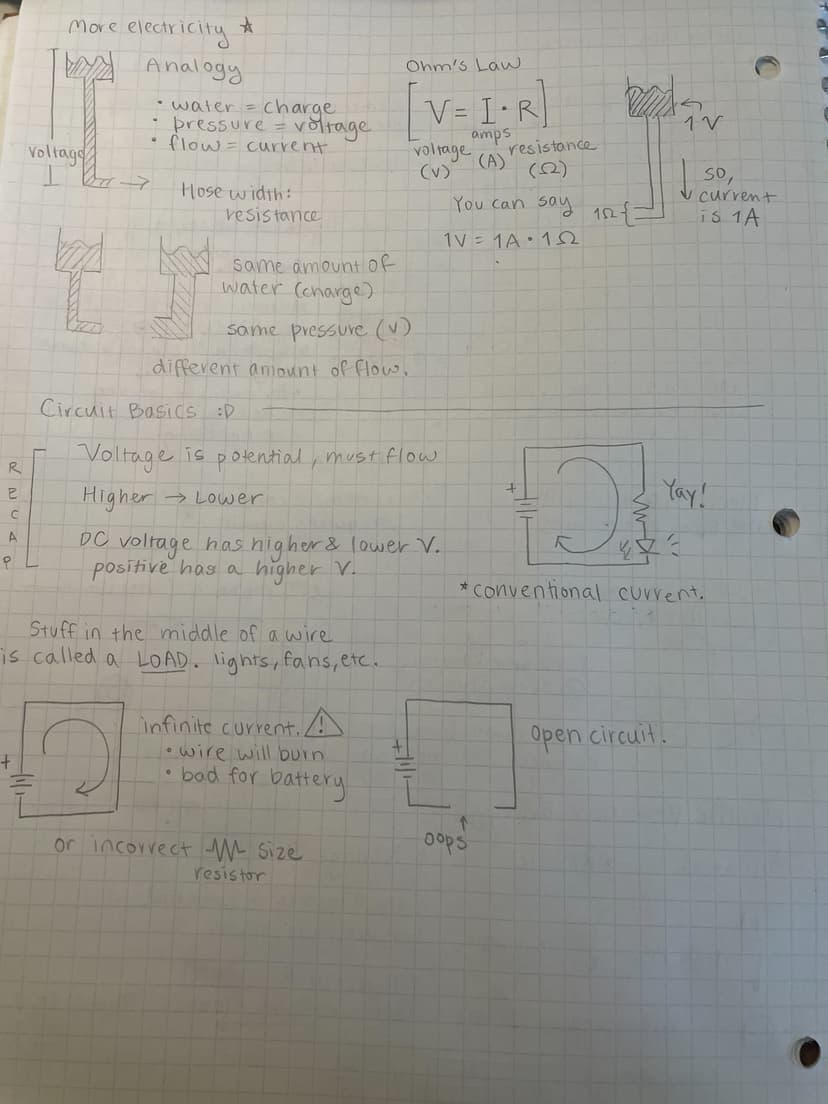 More electricity ☆
Analogy
• water = charge
• pressure = voltage
• flow = current
voltage
Hose width:
resistance
same amount of
water (charge)
same pressure (V)
different amount of flow.
Ohm's Law
[V = I • R]
amps
voltage (A) resistance
(V) (Ω)
You can say
1V = 1A • 1Ω
1V
1Ω
so,
current
is 1A
Circuit Basics :D
RECAP
Voltage is potential, must flow
Higher → Lower
DC voltage has higher & lower V.
positive has a higher V.
+
Yay!
*conventional current.
Stuff in the middle of a wire
is called a LOAD. lights, fans, etc.
+
infinite current. ⚠
• wire will burn
• bad for battery
or incorrect size
resistor
+
open circuit.
oops